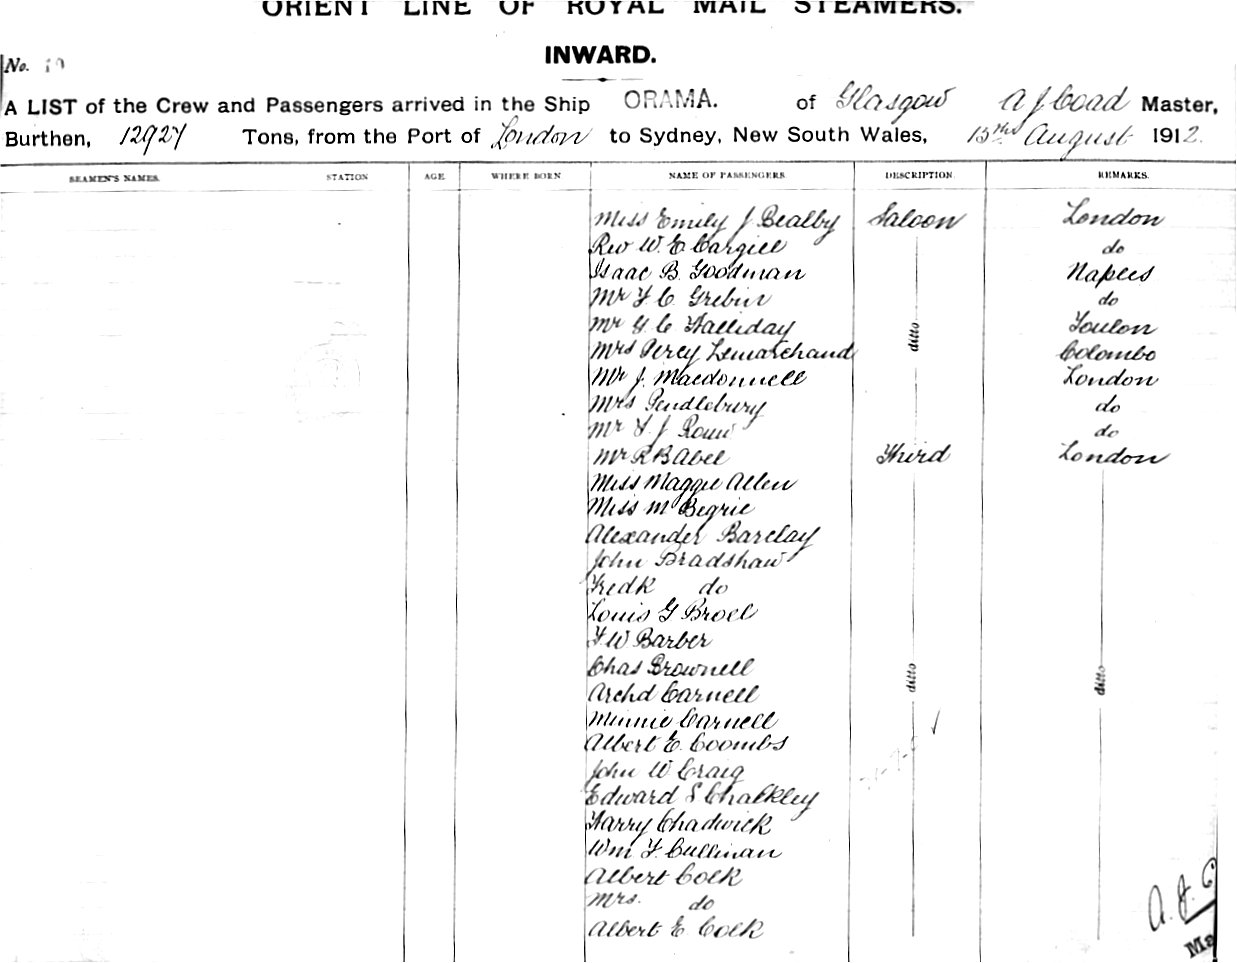 ORIENT LINE OF ROYAL MAIL STEAMERS.
INWARD.
No. 10
A LIST of the Crew and Passengers arrived in the Ship ORAMA. of Glasgow A J Coad Master,
Burthen, 12927 Tons, from the Port of London to Sydney, New South Wales, 15th August 1912.
SEAMEN'S NAMES. STATION AGE. WHERE BORN NAME OF PASSENGERS DESCRIPTION. REMARKS.
Miss Emily J Bealby Saloon London
Rev W. E. Cargill do
Isaac B. Goodman Naples
Mr F. C. Do
Mr G. C Halliday ditto Toulon
Mrs Percy Lemarchand Colombo
Mr J. Macdonnell London
Mrs Pendlebury do
Mr F J do
Mr R B Abel Third London
Miss Maggie Allen
Miss M Begrie
Alexander Barclay
John Bradshaw
Fredk do
Louis G Broel
F W Barber
Chas Brownell ditto ditto
Archd Carnell
Minnie Carnell
Albert E. Coombs
John W Craig
Edward S Chalkley
Harry Chadwick
Wm F. Cullinan
Albert Colk
Mrs. do
Albert E Colk
A. J. C
Ma